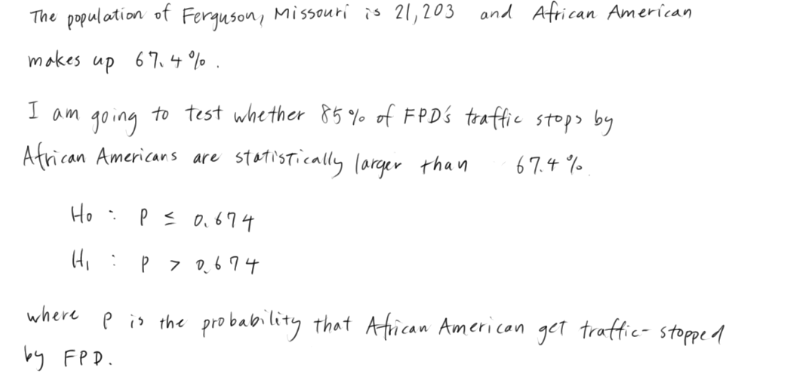 The population of Ferguson, Missouri is 21,203 and African American
makes up 67.4% .
I am going to test whether 85% of FPD's traffic stops by
African Americans are statistically larger than 67.4%.
H0 : P ≤ 0.674
H1 : P > 0.674
where p is the probability that African American get traffic-stopped
by FPD.